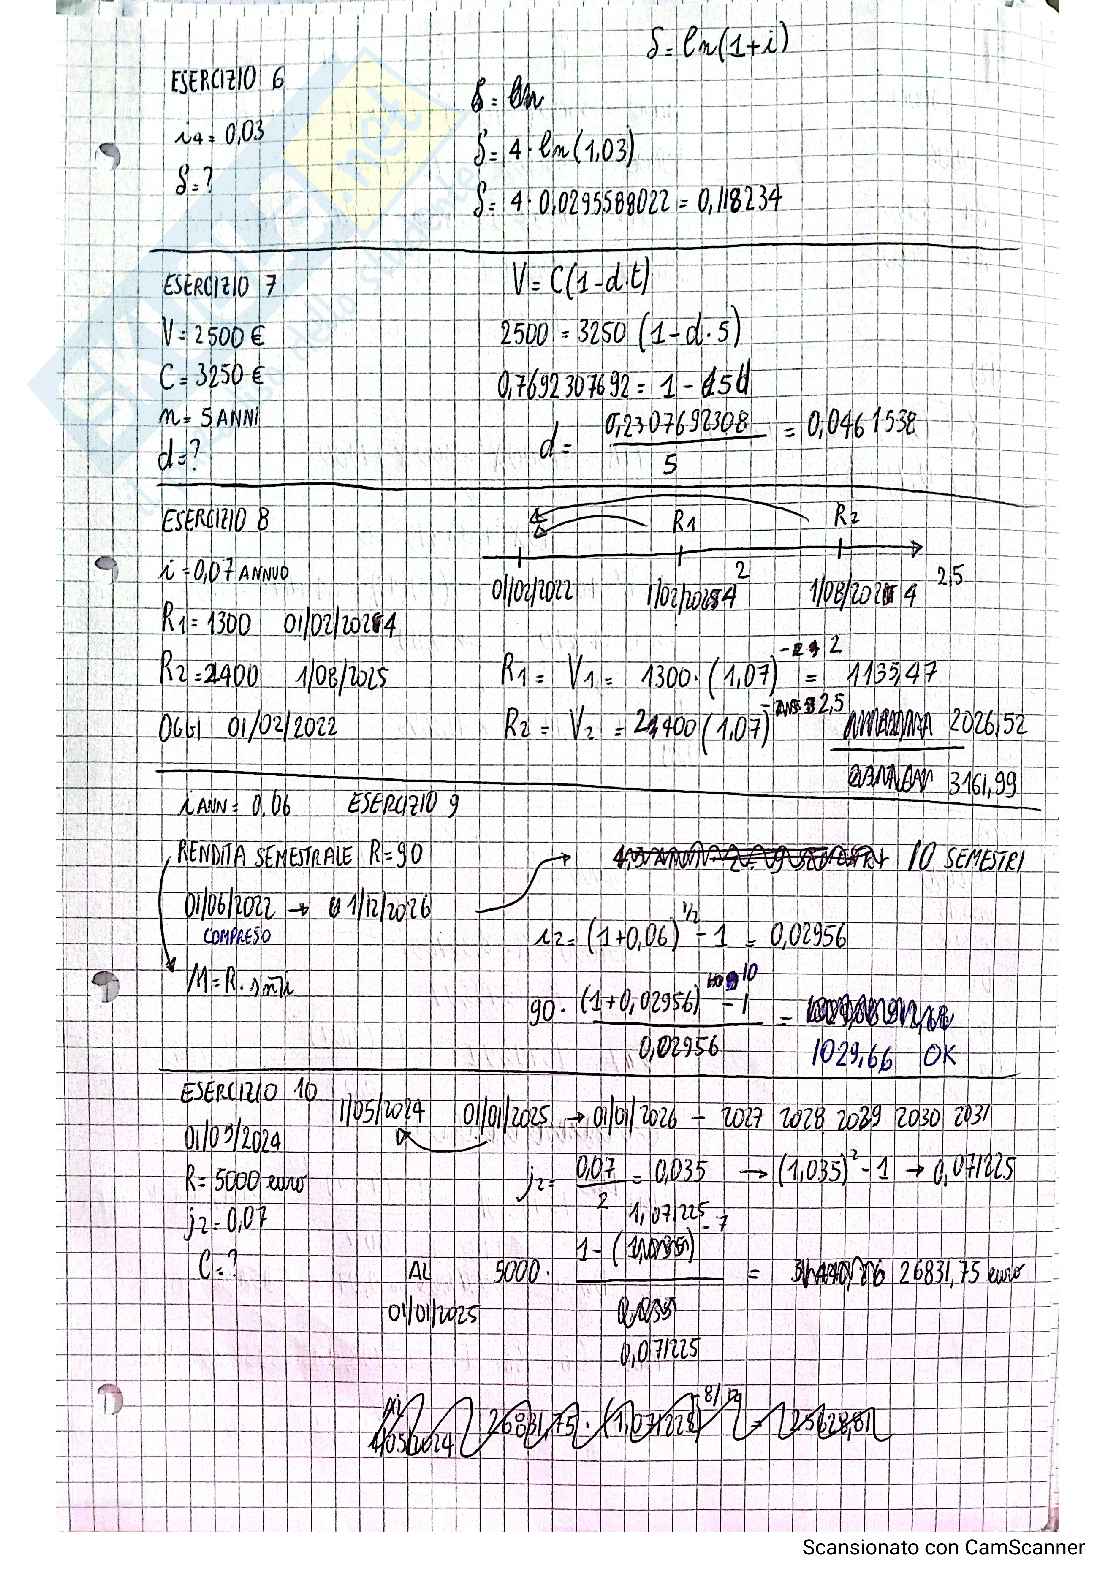 δ = ln(1+i)
ESERCIZIO 6
δ = ln
i4 = 0,03
δ = 4 · ln(1,03)
δ = ?
δ = 4 · 0,0295588022 = 0,118234
ESERCIZIO 7
V = C(1-d·t)
V = 2500 €
2500 = 3250 (1-d·5)
C = 3250 €
0,7692307692 = 1 - 5d
n = 5 ANNI
d = 0,2307692308 / 5 = 0,0461538
d = ?
ESERCIZIO 8
R1 R2
i = 0,07 ANNUO
01/02/2022 1/02/2024 2 1/08/2024 2,5
R1 = 1300 01/02/2024
R2 = 2400 1/08/2025
R1 = V1 = 1300 · (1,07)^-2 = 1135,47
OGGI 01/02/2022
R2 = V2 = 2400 (1,07)^-2,5 2026,52
3161,99
i ANN = 0,06 ESERCIZIO 9
RENDITA SEMESTRALE R = 90
10 SEMESTRI
01/06/2022 → 1/12/2026
COMPRESO
i2 = (1+0,06)^1/2 - 1 = 0,02956
M = R · s n̅ i
90 · (1+0,02956)^10 - 1 / 0,02956 =
1029,66 OK
ESERCIZIO 10
1/05/2024 01/01/2025 → 01/01/2026 - 2027 2028 2029 2030 2031
01/05/2024
R = 5000 euro
j2 = 0,07 / 2 = 0,035 → (1,035)^2 - 1 → 0,071225
j2 = 0,07
C = ?
AL 01/01/2025
5000 · 1 - (1,071225)^-7 / 0,071225 = 26831,75 euro
1/05/2024 26831,75 ·
Scansionato con CamScanner